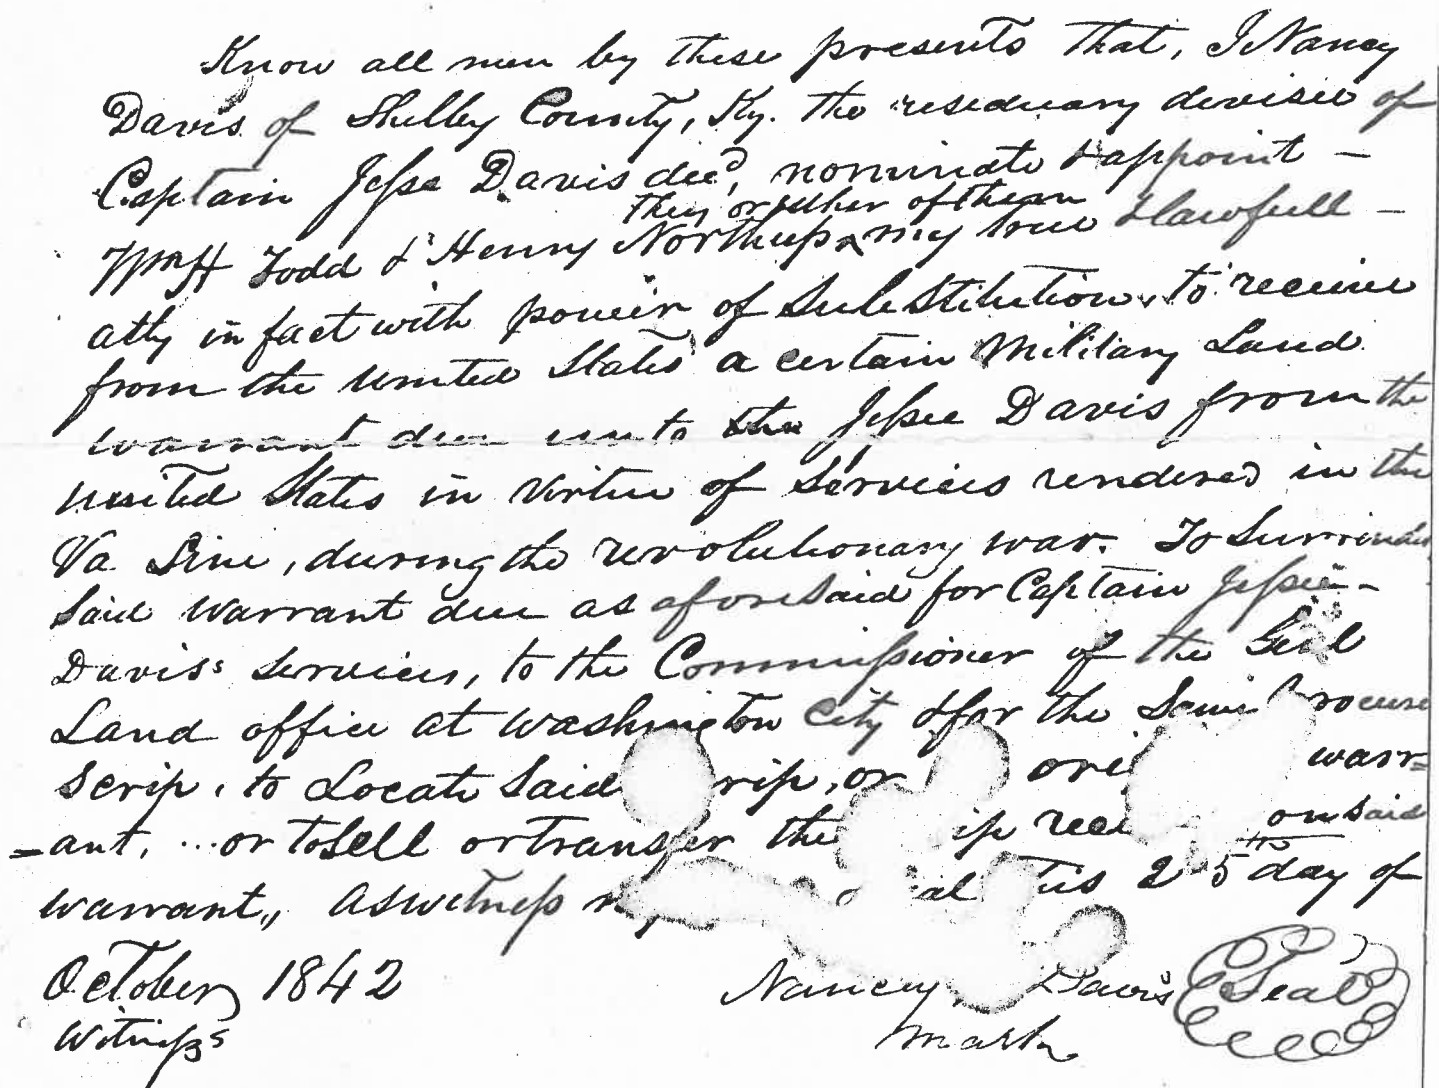 Know all men by these presents that, I Nancy
Davis of Shelby County, Ky. the reseduary devisee of
Captain Jesse Davis decd, nominate & appoint –
they or either of them
Wm H Todd & Henry Northup my true & lawfull –
atty in fact with power of Substitution, to receive
from the United States a certain Military Land
warrant due unto the Jessee Davis from the
united States in virtue of Services rendered in the
Va Line, during the revolutionary war. To Surrender
Said Warrant due as aforesaid for Captain Jessee –
Davis's Services, to the Commissioner of the Genl
Land office at Washington City & for the Same Procure
Scrip, to Locate Said rip, or ori warr=
=ant, ... or to Sell or transfer the ip recei on said
warrant,, As witness al this 25th day of
October 1842
Nancy Davis Seal
Witness
mark